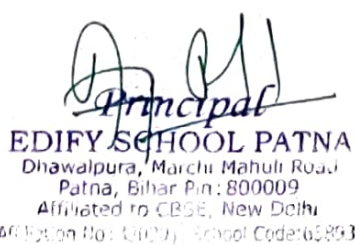 Principal
EDIFY SCHOOL PATNA
Dhawalpura, Marchi Mahuli Road
Patna, Bihar Pin: 800009
Affiliated to CBSE, New Delhi
Affiliation No: School Code: 65893